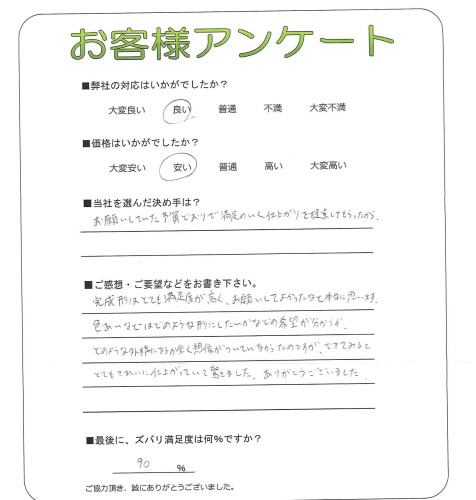 お客様アンケート
■弊社の対応はいかがでしたか？
大変良い 良い 普通 不満 大変不満
■価格はいかがでしたか？
大変安い 安い 普通 高い 大変高い
■当社を選んだ決め手は？
お願いしていた予算どおりで満足のいく仕上がりを提案してもらったから。
■ご感想・ご要望などをお書き下さい。
完成形はとても満足度が高く、お願いしてよかったなと本当に思います。
色あいなどはどのような形にしたいかなどの希望が分からず、
どのような外構になるか全く想像がついていなかったのですが、できてみると
とてもきれいに仕上がっていて驚きました。ありがとうございました。
■最後に、ズバリ満足度は何%ですか？
90 %
ご協力頂き、誠にありがとうございました。